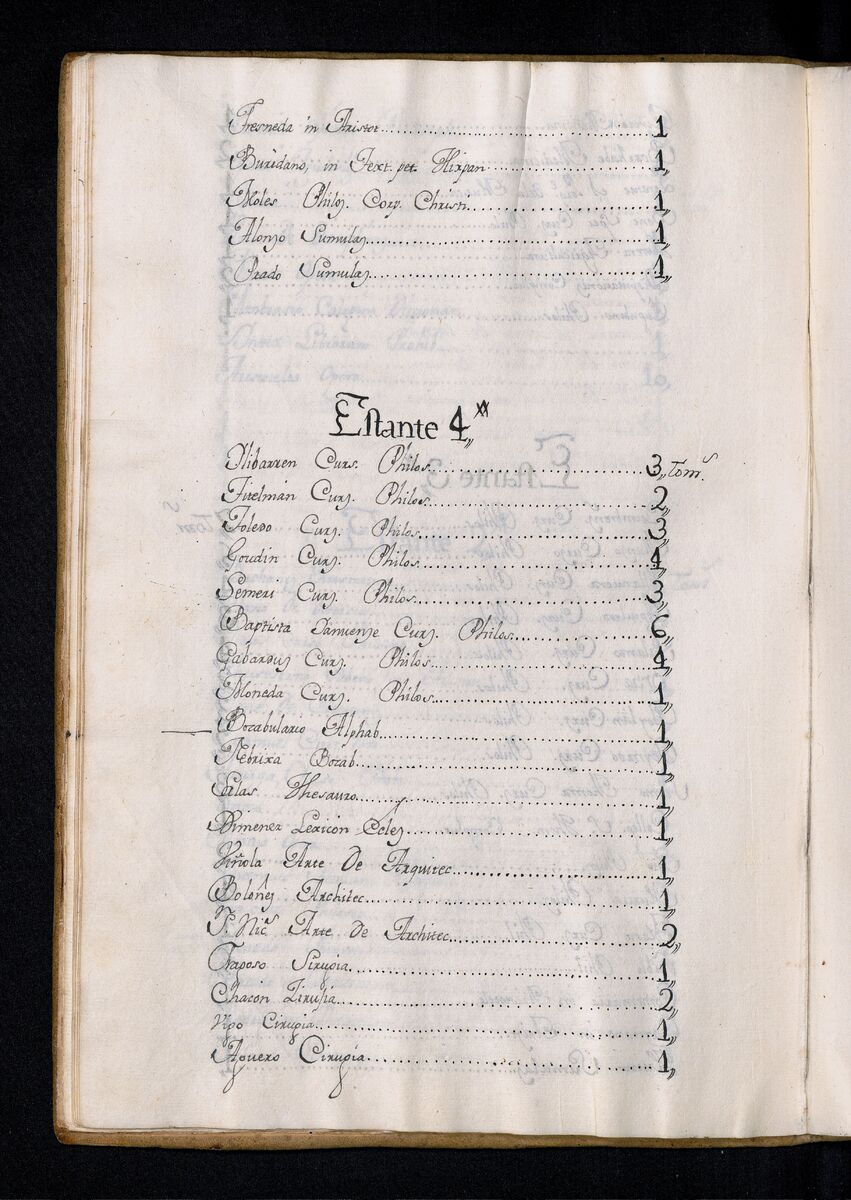 Fresneda in Aristot. 1
Buridano, in Text. pet. Hispan 1„
Moles Philos. Corp. Christi 1„
Alonso Sumulas 1„
Prado Sumulas 1„
Estante 4„
Olibarren Curs. Philos. 3„ tom.s
Titelmán Curs. Philos. 2„
Toledo Curs. Philos. 3„
Goudin Curs. Philos. 4„
Semeri Curs. Philos. 3„
Baptista Januense Curs. Philos. 6„
Gabardus Curs. Philos. 4„
Moneda Curs. Philos. 1„
Bocabulario Alphab. 1„
Nebrixa Bocab. 1„
Salas Thesauro 1„
Ximenez Lexicón Ecles 1„
Viñola Arte de Arquitec. 1„
Boloñes Architec. 1„
P. Nic.s Arte de Architec. 2„
Fragoso Sirugia 1„
Chacón Zirugia 2„
Vigo Cirugia 1„
Aguero Cirugia 1„